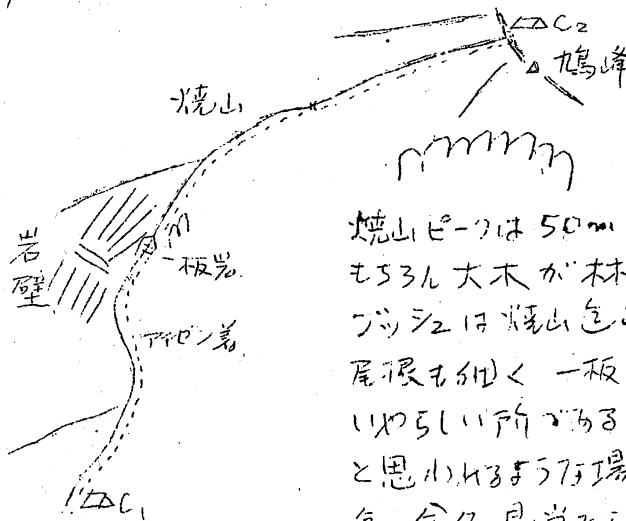 C2
鳩峰
焼山
岩壁
一板岩
アイゼン着
C1
焼山ピークは50m
もちろん大木が林
ブッシュは焼山迄
尾根も細く 一板
いやらしい所である
と思われるような場